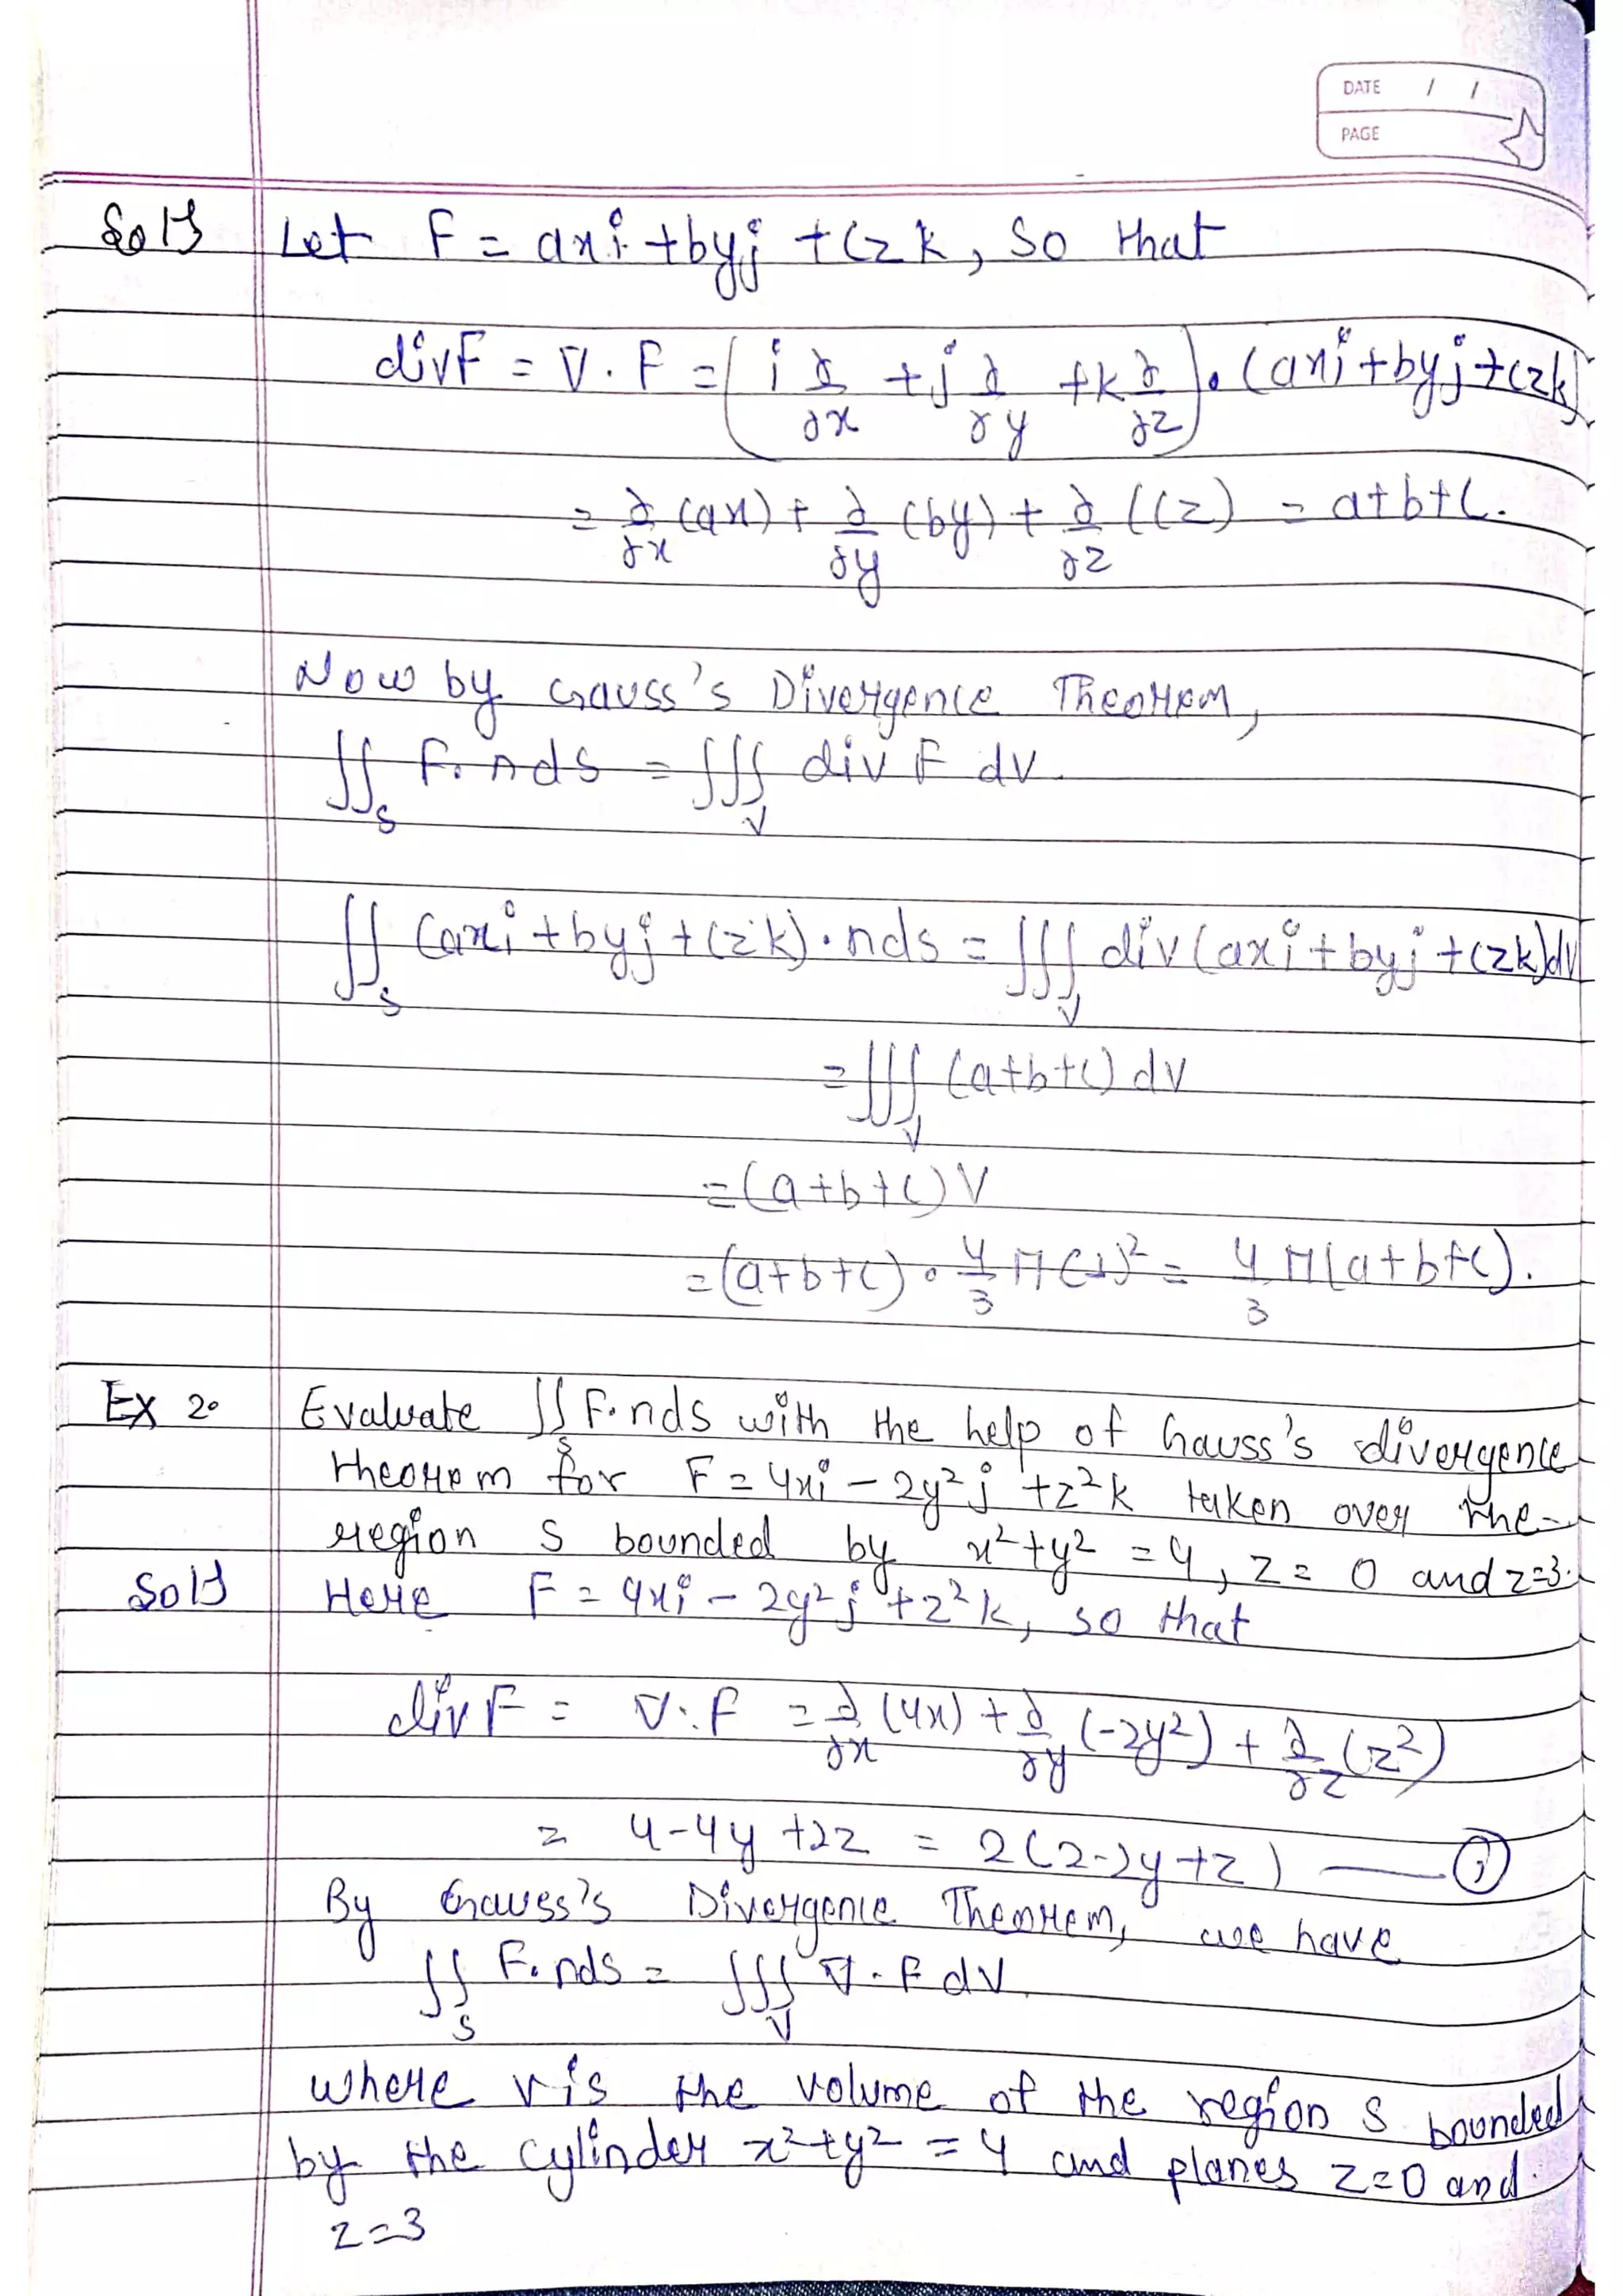 DATE / /
PAGE
Solⁿ Let F = axi + byj + czk, so that
div F = ∇ . F = ( i ∂/∂x + j ∂/∂y + k ∂/∂z ) . (axi + byj + czk)
= ∂/∂x (ax) + ∂/∂y (by) + ∂/∂z (cz) = a+b+c.
Now by Gauss's Divergence Theorem,
∬_S F. n ds = ∭_V div F dv.
∬_S (axi + byj + czk) . n ds = ∭_V div (axi + byj + czk) dv
= ∭_V (a+b+c) dv
= (a+b+c) V
= (a+b+c) . 4/3 π (1)² = 4/3 π (a+b+c).
Ex 2. Evaluate ∬_S F. n ds with the help of Gauss's divergence
theorem for F = 4xi - 2y²j + z²k taken over the
region S bounded by x²+y² = 4, z = 0 and z=3.
Solⁿ Here F = 4xi - 2y²j + z²k, so that
div F = ∇ . F = ∂/∂x (4x) + ∂/∂y (-2y²) + ∂/∂z (z²)
= 4-4y+2z = 2(2-2y+z) — (i)
By Gauss's Divergence Theorem, we have
∬_S F. n ds = ∭_V ∇ . F dV.
where v is the volume of the region S bounded
by the cylinder x²+y² = 4 and planes z=0 and
z=3